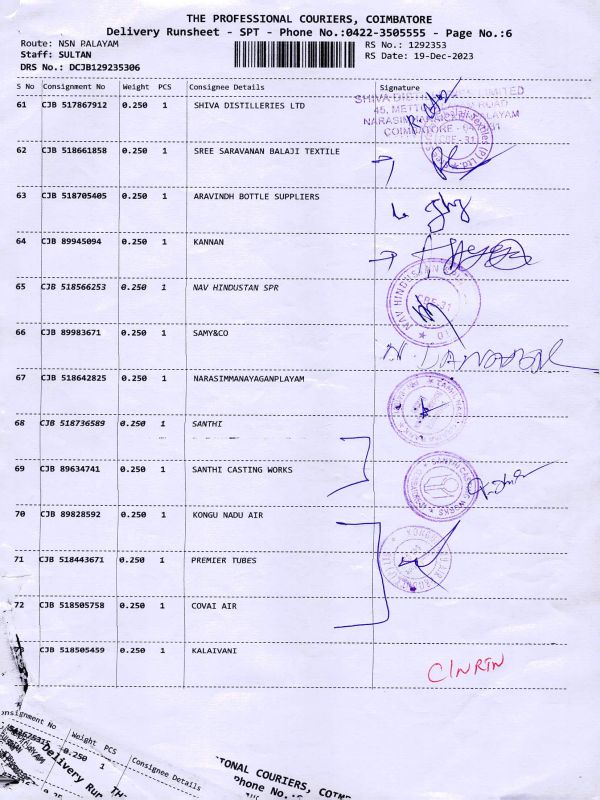 THE PROFESSIONAL COURIERS, COIMBATORE
Delivery Runsheet - SPT - Phone No.:0422-3505555 - Page No.:6
Route: NSN PALAYAM RS No.: 1292353
Staff: SULTAN RS Date: 19-Dec-2023
DRS No.: DCJB129235306
S No Consignment No Weight PCS Consignee Details Signature
61 CJB 517867912 0.250 1 SHIVA DISTILLERIES LTD
62 CJB 518661858 0.250 1 SREE SARAVANAN BALAJI TEXTILE
63 CJB 518705405 0.250 1 ARAVINDH BOTTLE SUPPLIERS
64 CJB 89945094 0.250 1 KANNAN
65 CJB 518566253 0.250 1 NAV HINDUSTAN SPR
66 CJB 89983671 0.250 1 SAMY&CO
67 CJB 518642825 0.250 1 NARASIMMANAYAGANPLAYAM
68 CJB 518736589 0.250 1 SANTHI
69 CJB 89634741 0.250 1 SANTHI CASTING WORKS
70 CJB 89828592 0.250 1 KONGU NADU AIR
71 CJB 518443671 0.250 1 PREMIER TUBES
72 CJB 518505758 0.250 1 COVAI AIR
73 CJB 518505459 0.250 1 KALAIVANI
C/NRTN
Consignment No Weight PCS Consignee Details
0.250 1
Delivery Run
COURIERS, COIM
Phone No.: